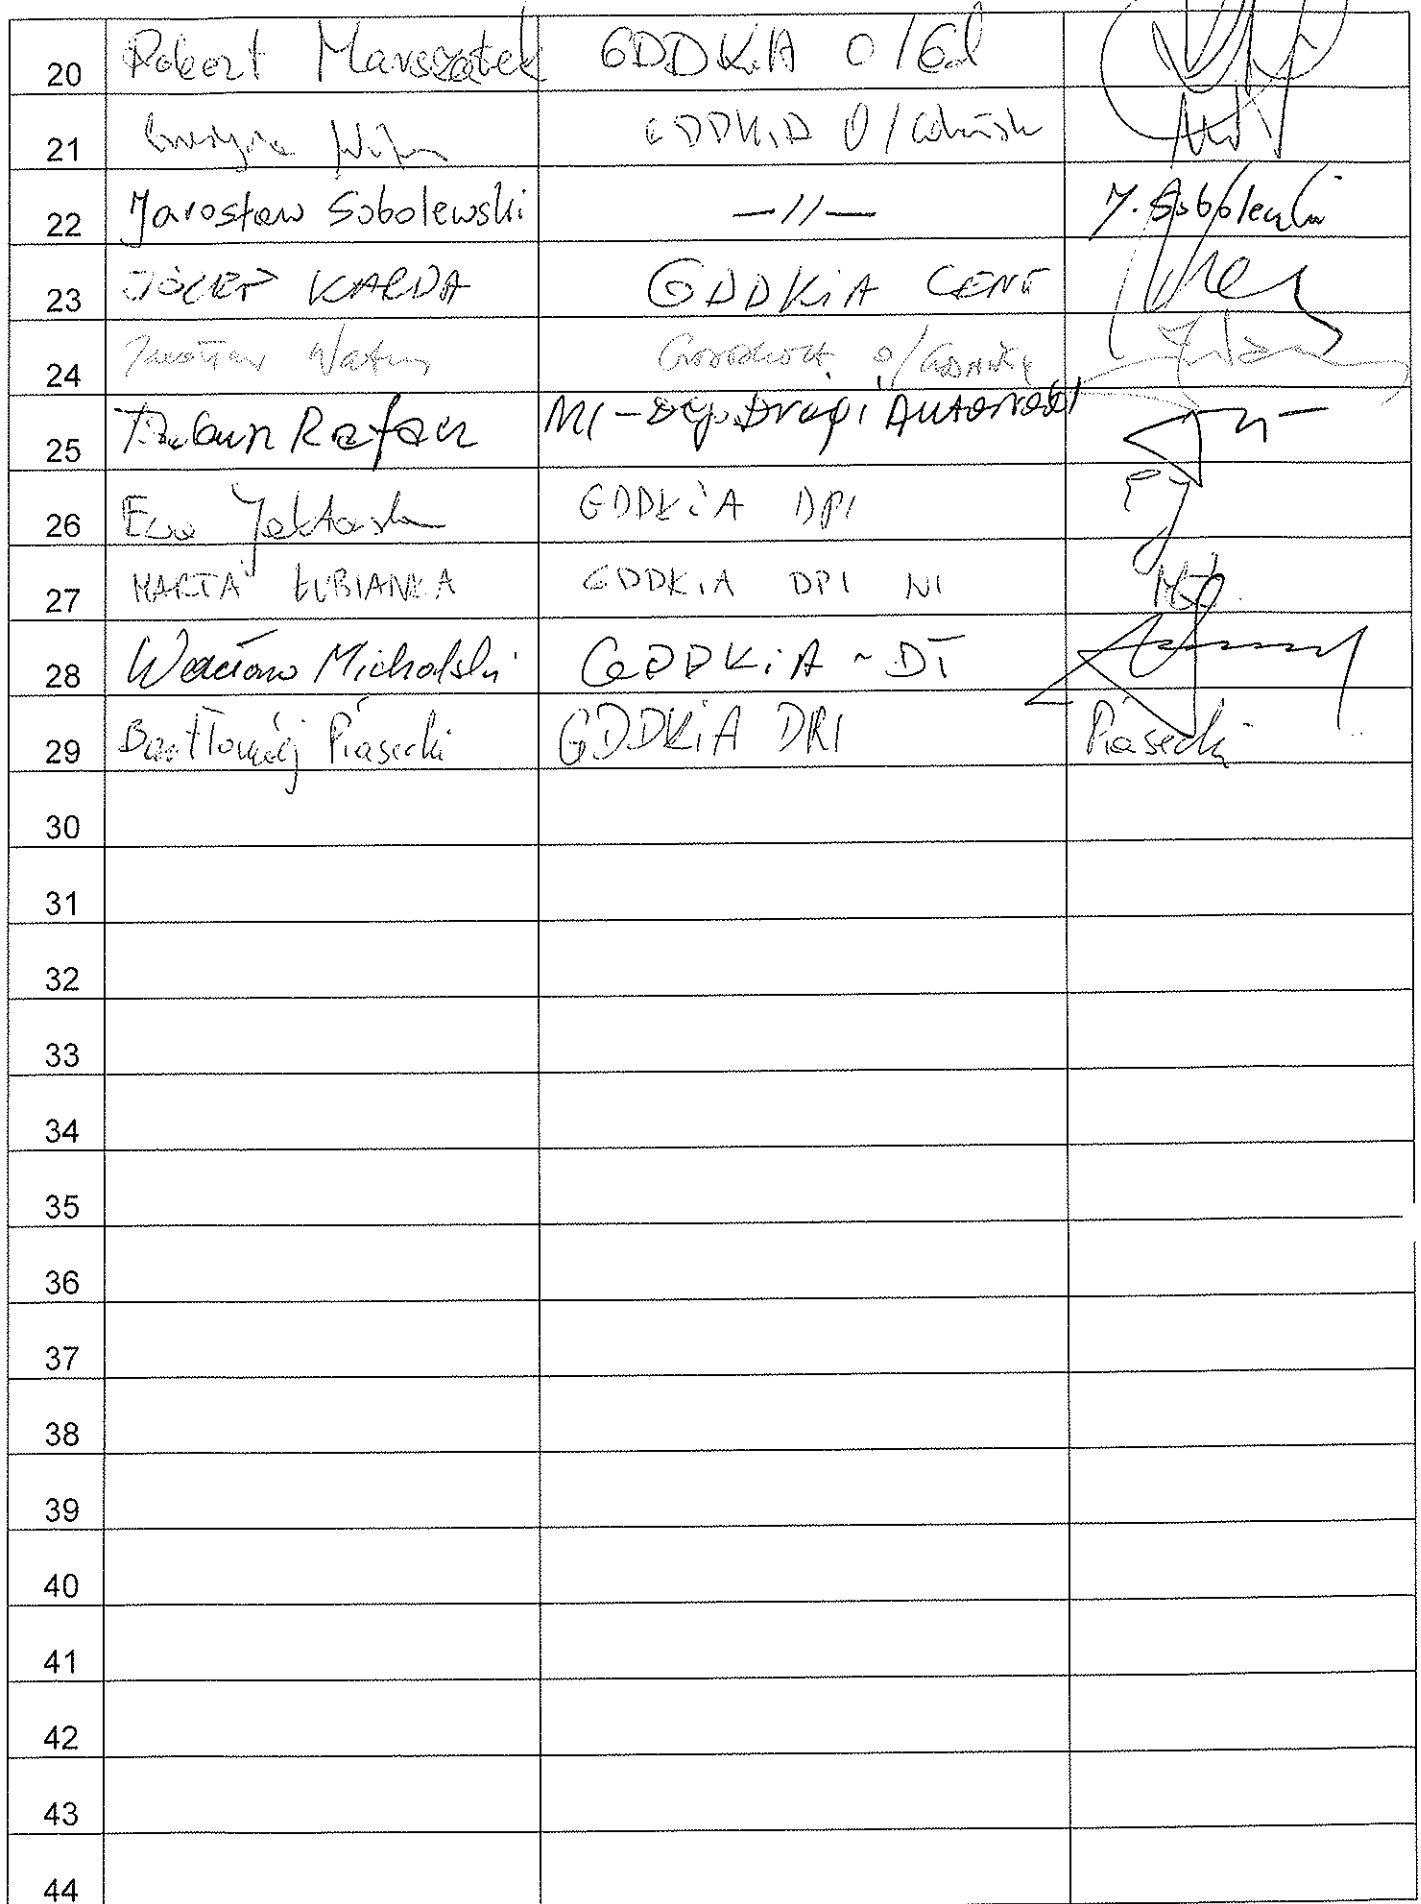 20 Robert Marszałek GDDKiA O/Gd
21 GDDKiA O/Gdańsk
22 Jarosław Sobolewski —//— J. Sobolewski
23 JÓZEF KARDA GDDKiA CENT
24 O/GDAŃSK
25 Rafał MI - Dep. Dróg i Autostrad
26 Ewa GDDKiA DPI
27 MARTA ŁUBIANKA GDDKiA DPI NI
28 Wacław Michalski GDDKiA - DT
29 Bartłomiej Piasecki GDDKiA DRI Piasecki
30
31
32
33
34
35
36
37
38
39
40
41
42
43
44